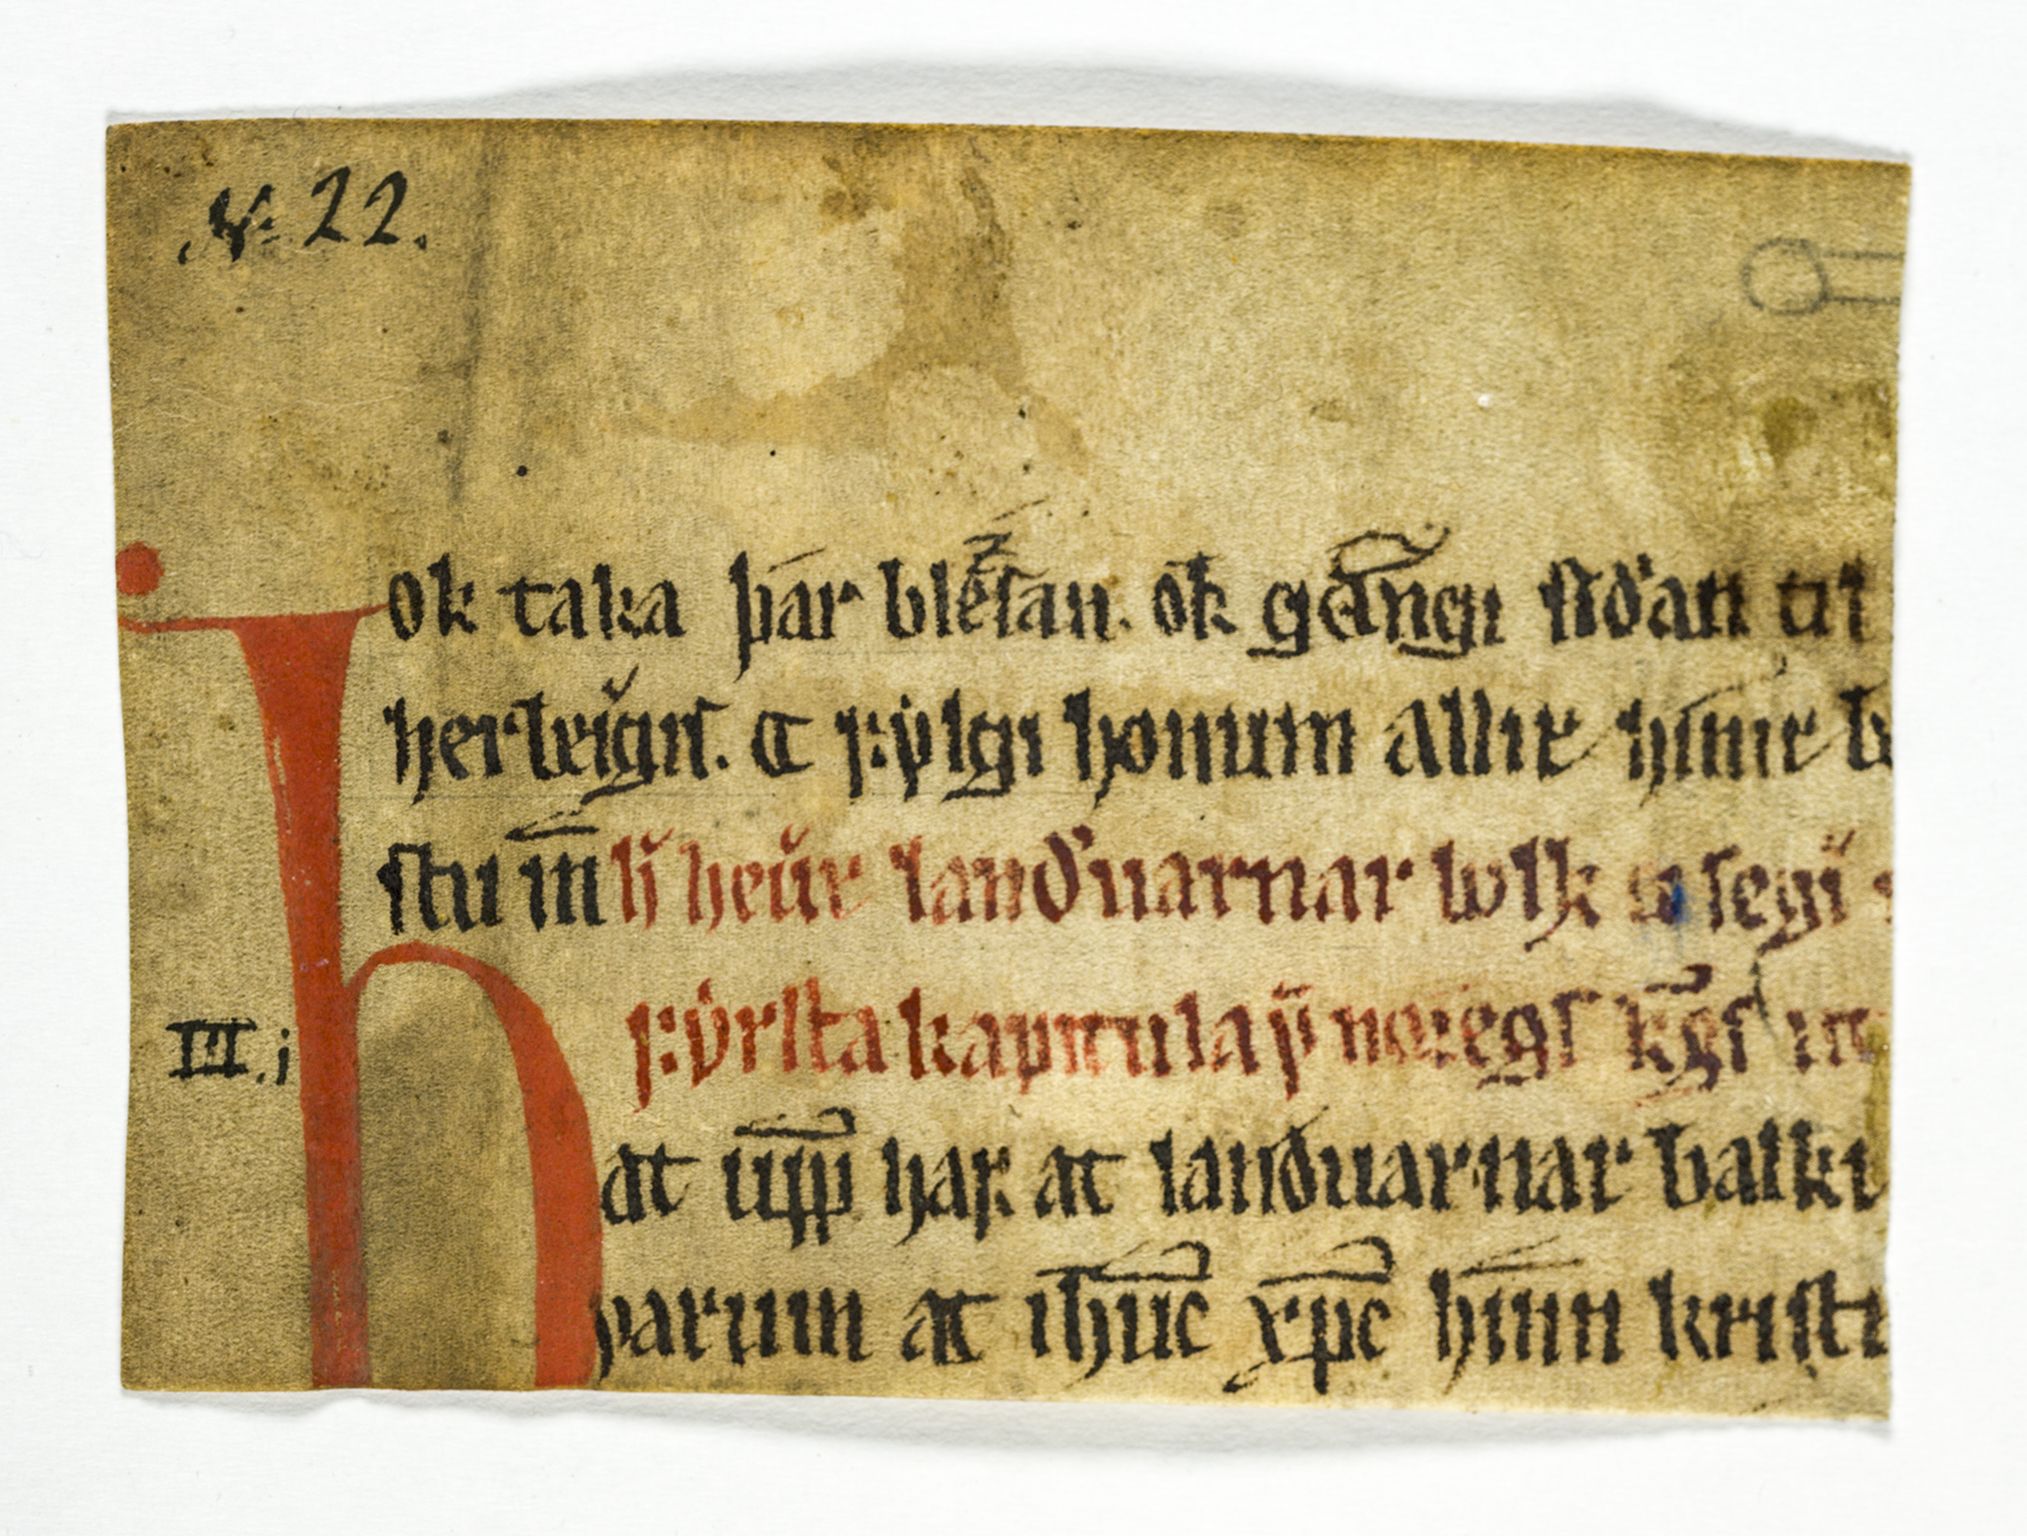 N: 22.
ok taka þar bleſan. ok gangi ſiðan til
herbergiſ. ok fylgi honum allir hínír b
ſtu m̅ h̅ hefir landuarnar bolk ok ſegi
fyrſta kapitula ỹ noregſ kgſ
III.i
at upp haf at landuarnar balki
varum at ih̅uc xp̅c hínn kriſt